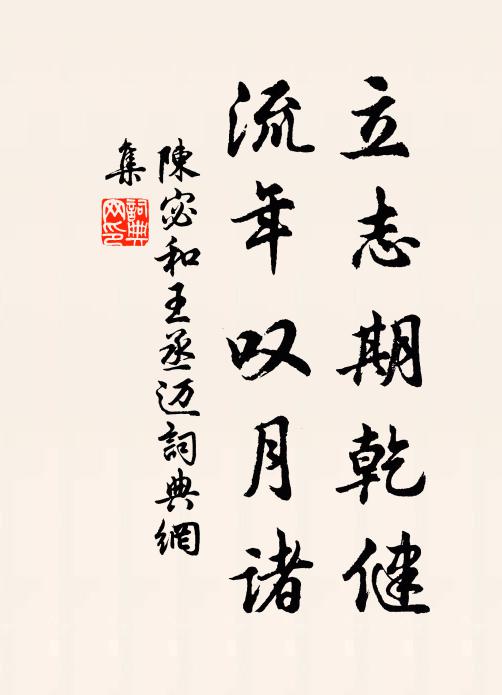 立志期乾健
流年叹月诸
陳宓和王丞迈詞典網
集
詞典網印